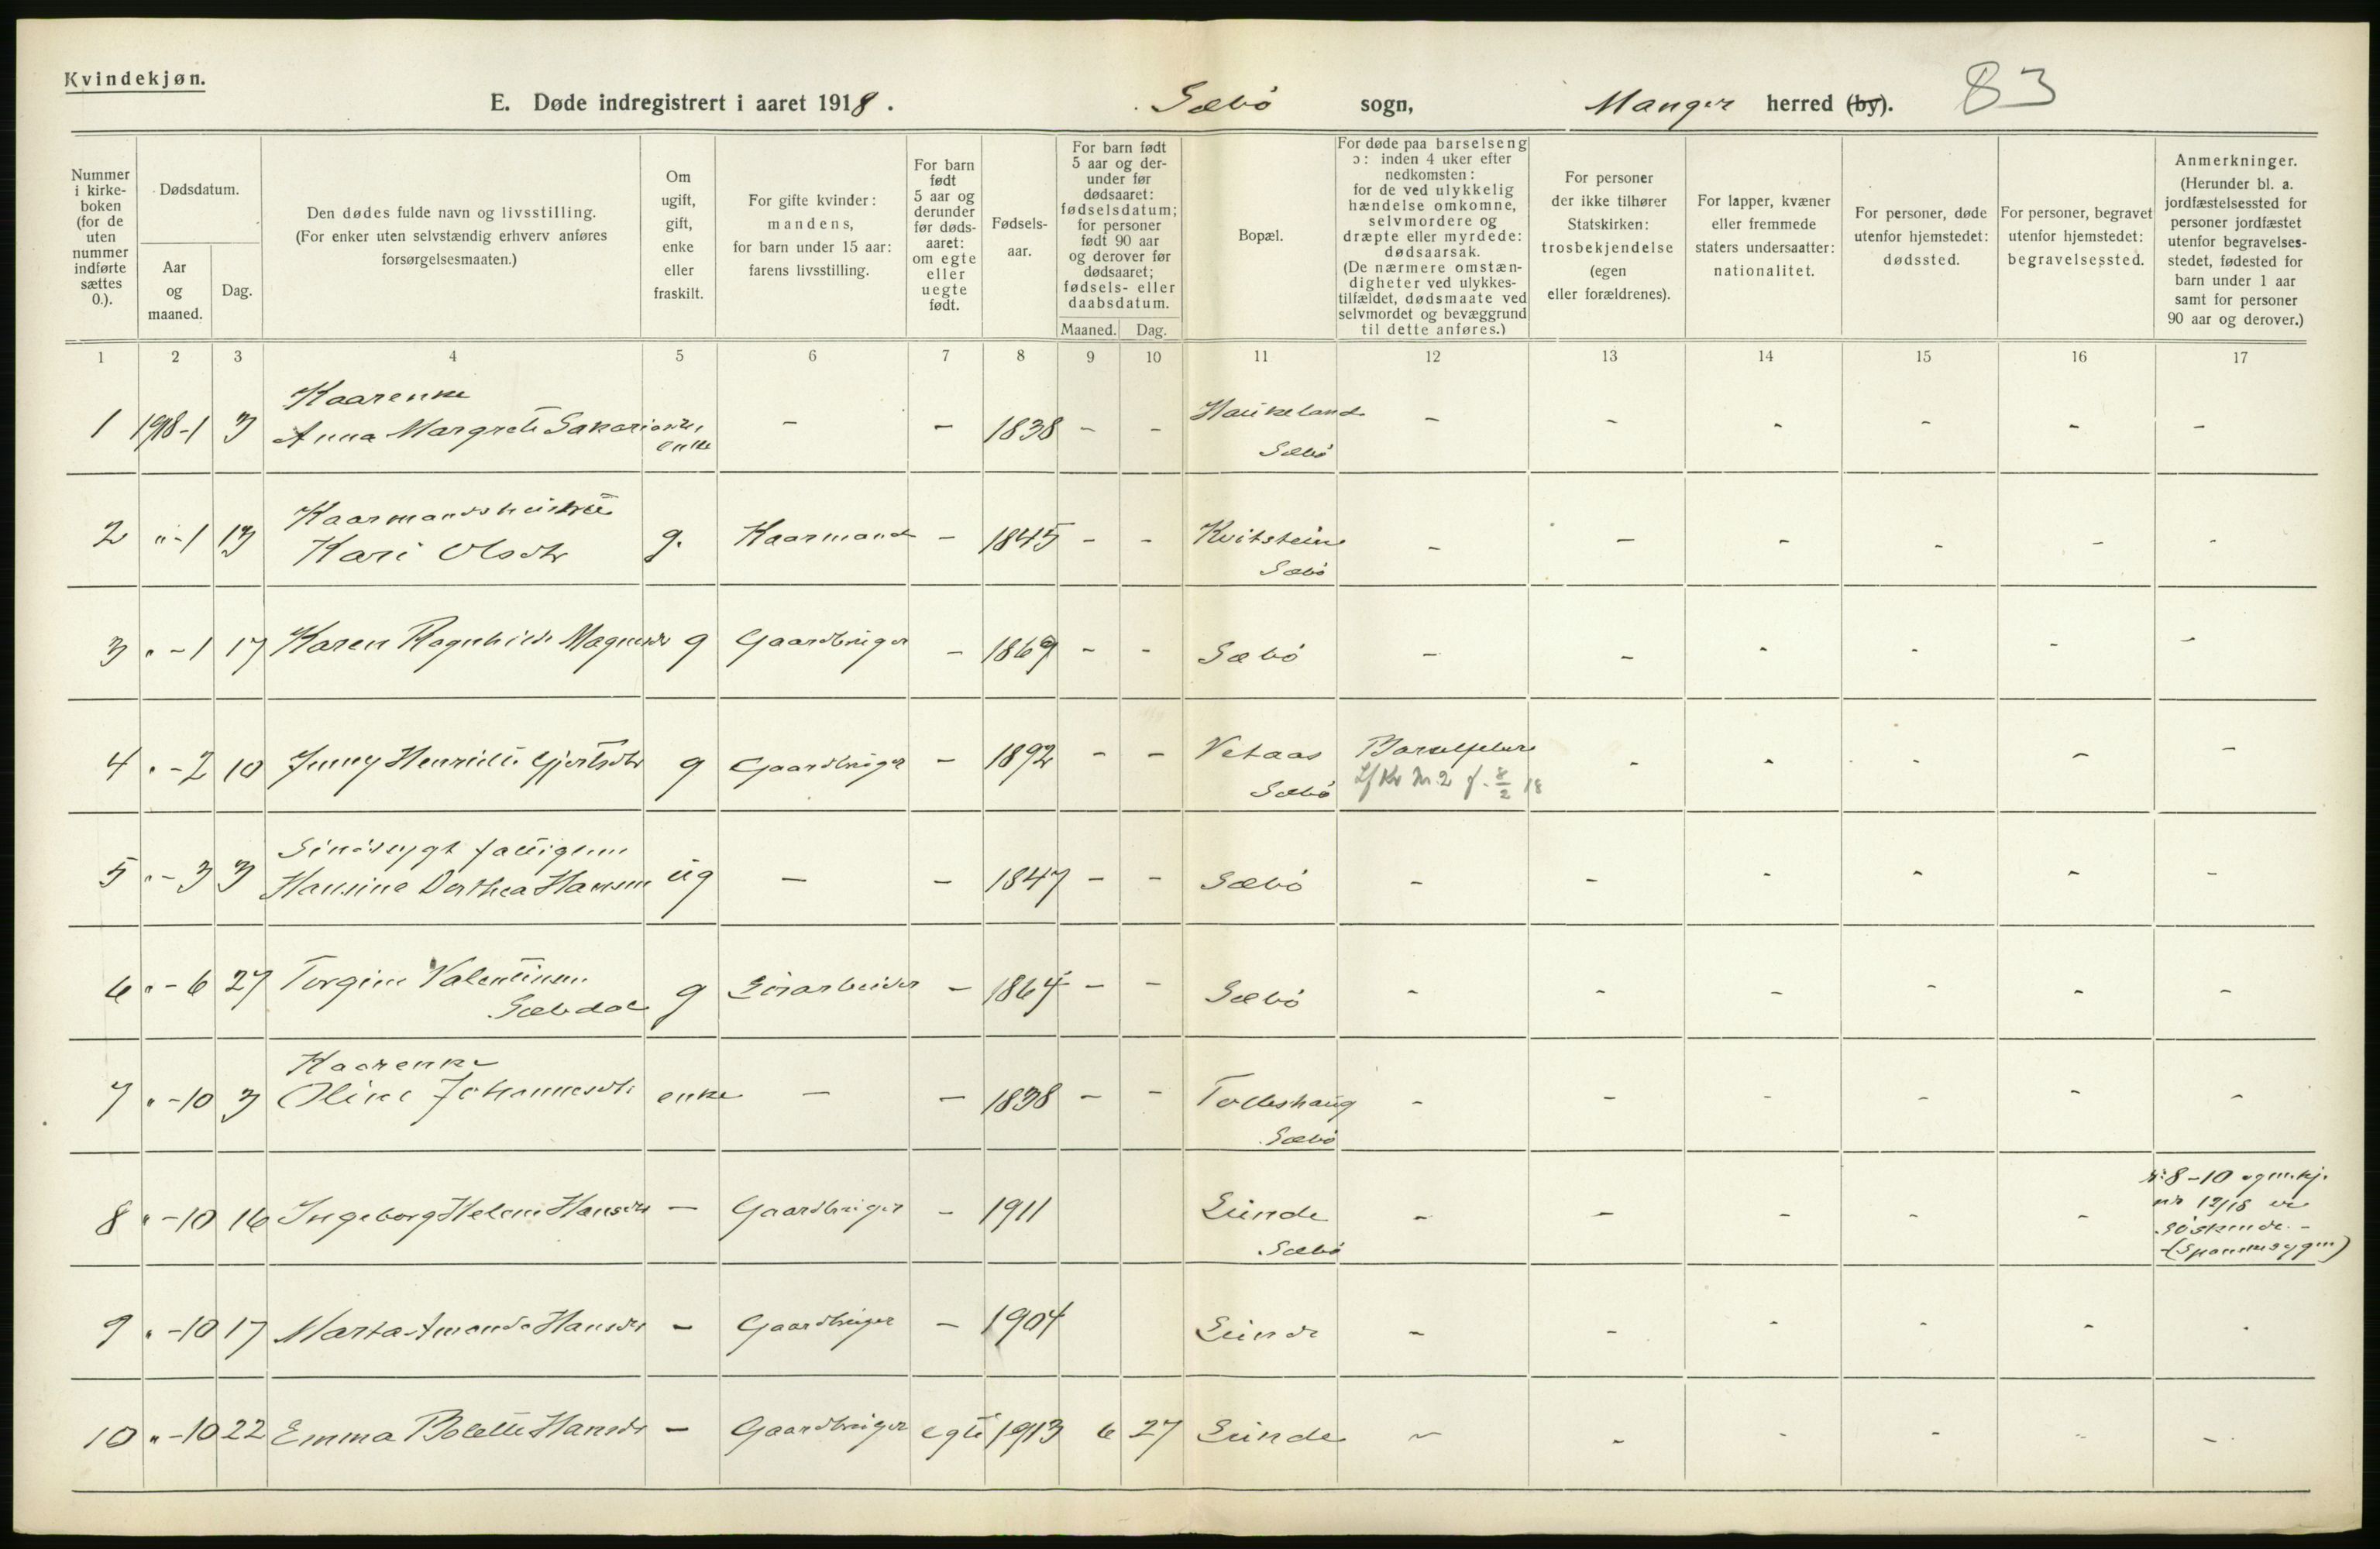 Kvindekjøn.
E. Døde indregistrert i aaret 1918. Sæbö sogn, Manger herred (by). 83
Nummer i kirke- boken (for de uten nummer indførte sættes 0.).
Dødsdatum.
Aar og maaned.
Dag.
Den dødes fulde navn og livsstilling.
(For enker uten selvstændig erhverv anføres
forsørgelsesmaaten.)
Om ugift, gift, enke eller fraskilt.
For gifte kvinder: mandens, for barn under 15 aar: farens livsstilling.
For barn født 5 aar og derunder før døds- aaret: om egte eller uegte født.
Fødsels- aar.
For barn født 5 aar og der- under før dødsaaret: fødselsdatum; for personer født 90 aar og derover før dødsaaret; fødsels- eller daabsdatum.
Maaned. Dag.
Bopæl.
For døde paa barselseng ɔ: inden 4 uker efter nedkomsten: for de ved ulykkelig hændelse omkomne, selvmordere og dræpte eller myrdede: dødsaarsak. (De nærmere omstæn- digheter ved ulykkes- tilfældet, dødsmaate ved selvmordet og bevæggrund til dette anføres.)
For personer der ikke tilhører Statskirken: trosbekjendelse (egen eller forældrenes).
For lapper, kvæner eller fremmede staters undersaatter: nationalitet.
For personer, døde utenfor hjemstedet: dødssted.
For personer, begravet utenfor hjemstedet: begravelsessted.
Anmerkninger. (Herunder bl. a. jordfæstelsessted for personer jordfæstet utenfor begravelses- stedet, fødested for barn under 1 aar samt for personer 90 aar og derover.)
1 2 3 4 5 6 7 8 9 10 11 12 13 14 15 16 17
Kaarenke
1 1918-1 3 Anna Margrete Sakariasdtr. enke - - 1838 - - Haukeland - - - - - -
Sæbö
Kaarmandshustru
2 "-1 13 Kari Olsdtr g. Kaarmand - 1845 - - Kvitsteine - - - - - -
Sæbö
3 "-1 17 Karen Ragnhild Magnusdr g Gaardbruger - 1869 - - Sæbö - - - - - -
4 "-2 10 Jenny Henriette Gjertsdtr g Gaardbruger - 1892 - - Vetaas Barselfeber - - - - -
Sæbö Lf Kv Nr. 2 f. 8/2 18
Sindssygt fattiglem
5 "-3 3 Hansine Dorthea Hansen ug - - 1847 - - Sæbö - - - - - -
6 "-6 27 Torgine Valentinsen g Löisarbeider - 1864 - - Sæbö - - - - - -
Sæbdal
Kaarenke
7 "-10 3 Oline Johannesdtr enke - - 1838 - - Tolleshaug - - - - - -
Sæbö
8 "-10 16 Ingeborg Helene Hansdtr - Gaardbruger - 1911 Lunde - - - - - Nr 8-10 og m.kj.
Sæbö nr 12/18 er
söskende. -
(Spanskesygen)
9 "-10 17 Marta Amanda Hansdtr - Gaardbruger - 1904 Lunde - - - - - -
10 "-10 22 Emma Bolette Hansdtr - Gaardbruger egte 1913 6 27 Lunde - - - - - -